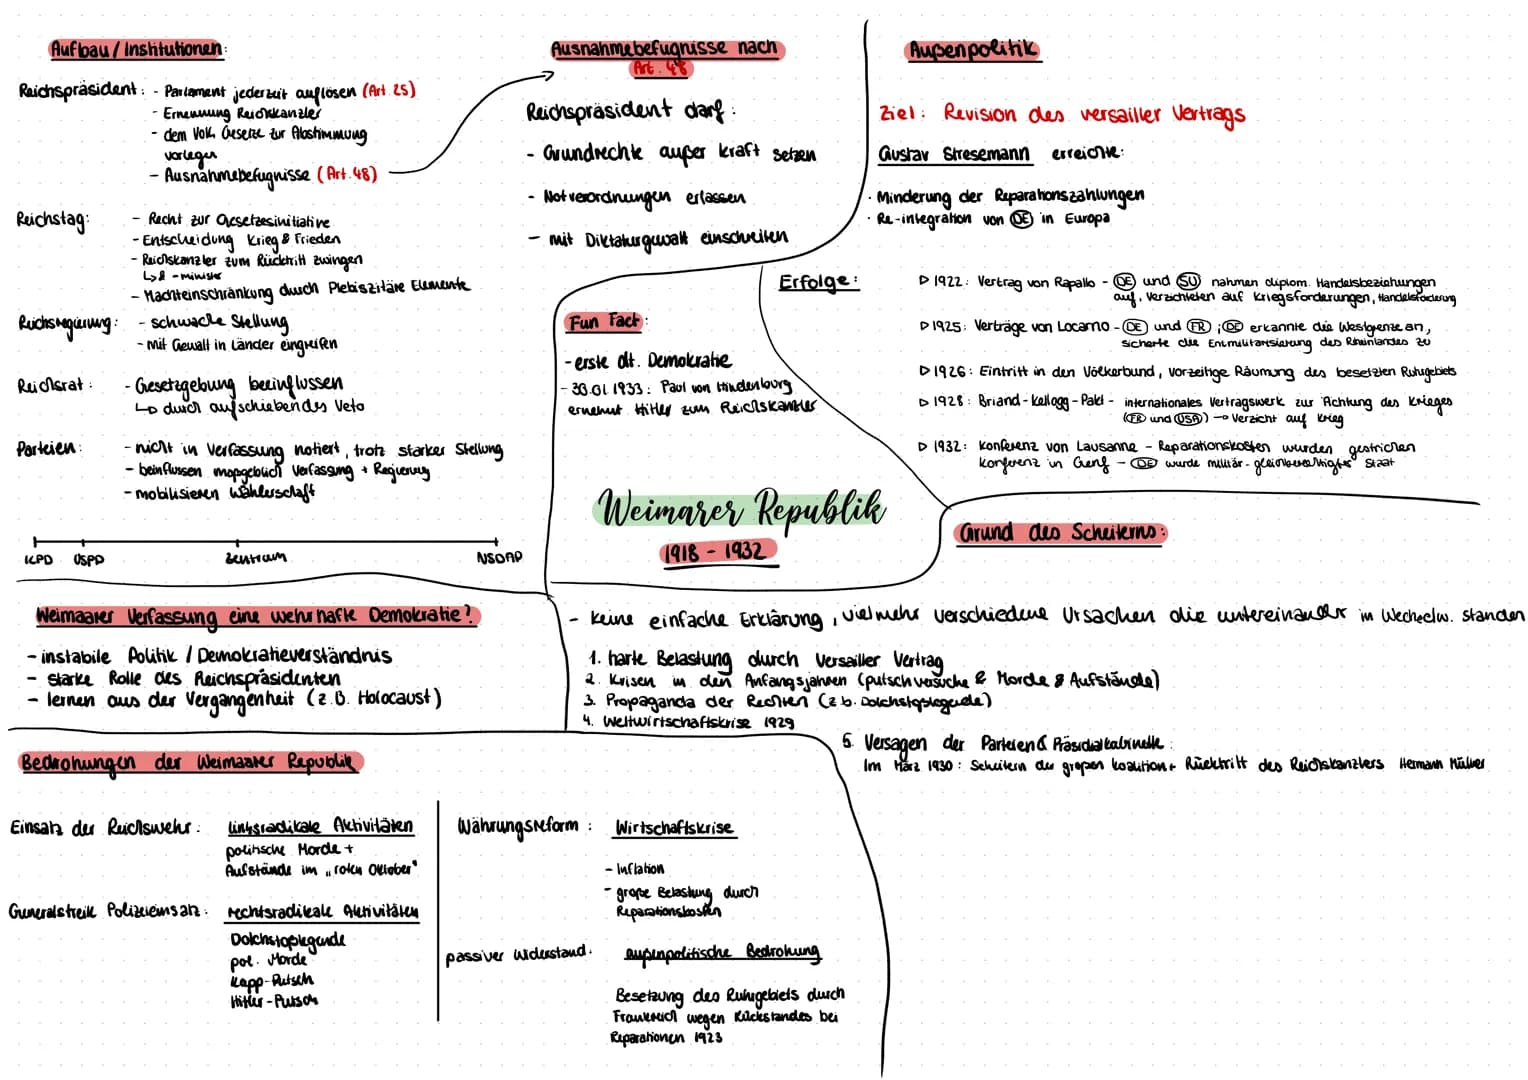 Aufbau / Institutionen:
Reichspräsident: - Parlament jederzeit auflösen (Art. 25)
- Ernennung Reichskanzler
- dem Volk Gesetze zur Abstimmung
vorlegen
- Ausnahmebefugnisse (Art. 48)
Reichstag: - Recht zur Gesetzesinitiative
- Entscheidung Krieg & Frieden
- Reichskanzler zum Rücktritt zwingen
↳ & -minister
- Machteinschränkung durch Plebiszitäre Elemente
Reichsregierung: - schwache Stellung
- mit Gewalt in Länder eingreifen
Reichsrat: - Gesetzgebung beeinflussen
↳ durch aufschiebendes Veto
Parteien: - nicht in Verfassung notiert, trotz starker Stellung
- beinflussen maßgeblich Verfassung + Regierung
- mobilisieren Wählerschaft
KPD USPD Zentrum NSDAP
Ausnahmebefugnisse nach
Art. 48
Reichspräsident darf:
- Grundrechte außer kraft setzen
- Notverordnungen erlassen
- mit Diktaturgewalt einschreiten
Außenpolitik
Ziel: Revision des versailler Vertrags
Gustav Stresemann erreichte:
· Minderung der Reparationszahlungen
· Re-integration von DE in Europa
Erfolge:
▷ 1922: Vertrag von Rapallo - DE und SU nahmen diplom. Handelsbeziehungen
auf, verzichteten auf Kriegsforderungen, Handelsförderung
▷ 1925: Verträge von Locarno - DE und FR; DE erkannte die Westgrenze an,
sicherte die Entmilitarisierung des Rheinlandes zu
▷ 1926: Eintritt in den Völkerbund, vorzeitige Räumung des besetzten Ruhrgebiets
▷ 1928: Briand-Kellogg-Pakt - internationales Vertragswerk zur Ächtung des Krieges
(FR und USA) → Verzicht auf Krieg
▷ 1932: Konferenz von Lausanne - Reparationskosten wurden gestrichen
Konferenz in Genf - DE wurde militär.-gleichberechtigter Staat
Fun Fact:
- erste dt. Demokratie
- 30.01.1933: Paul von Hindenburg
ernennt Hitler zum Reichskanzler
Weimarer Republik
1918 - 1932
Grund des Scheiterns:
- keine einfache Erklärung, vielmehr verschiedene Ursachen die untereinander in Wechselw. standen
1. harte Belastung durch Versailler Vertrag
2. Krisen in den Anfangsjahren (putschversuche & Morde & Aufstände)
3. Propaganda der Rechten (z.b. Dolchstoßlegende)
4. Weltwirtschaftskrise 1929
5. Versagen der Parteien & Präsidialkabinette:
Im März 1930: Scheitern der großen koalition + Rücktritt des Reichskanzlers Hermann Müller
Weimaarer Verfassung eine wehrhafte Demokratie?
- instabile Politik / Demokratieverständnis
- starke Rolle des Reichspräsidenten
- lernen aus der Vergangenheit (z.B. Holocaust)
Bedrohungen der Weimaarer Republik
Einsatz der Reichswehr: linksradikale Aktivitäten
politische Morde +
Aufstände im „roten Oktober"
Generalstreik Polizeieinsatz: rechtsradikale Aktivitäten
Dolchstoßlegende
pol. Morde
Kapp-Putsch
Hitler-Putsch
Währungsreform: Wirtschaftskrise
- Inflation
- große Belastung durch
Reparationskosten
passiver Widerstand: außenpolitische Bedrohung
Besetzung des Ruhrgebiets durch
Frankreich wegen Rückstandes bei
Reparationen 1923